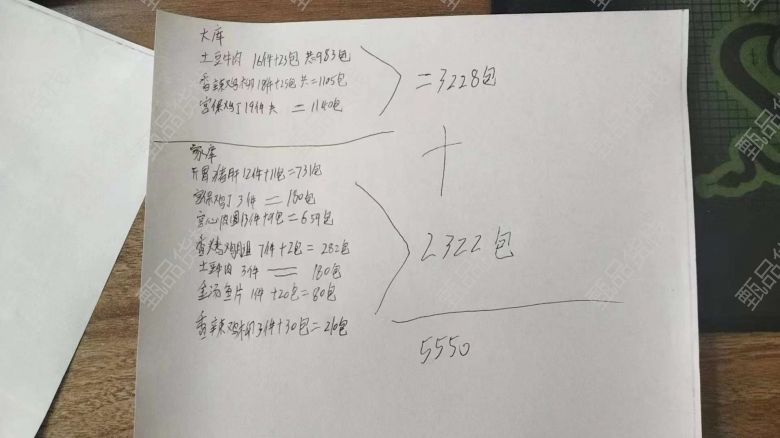 大库
土豆牛肉 16件+23包 共=983包
香辣鸡柳 18件+25包 共=1105包
宫保鸡丁 19件 共 =1140包
=3228包
家库
开胃猪肝 12件+11包=731包
宫保鸡丁 3件 = 180包
空心肉圆 13件+9包=659包
香烤鸡 7件+2包=282包
土豆牛肉 3件 = 180包
金汤鱼片 1件+20包=80包
香辣鸡柳 3件+30包=210包
+
2322包
5550
甄品货